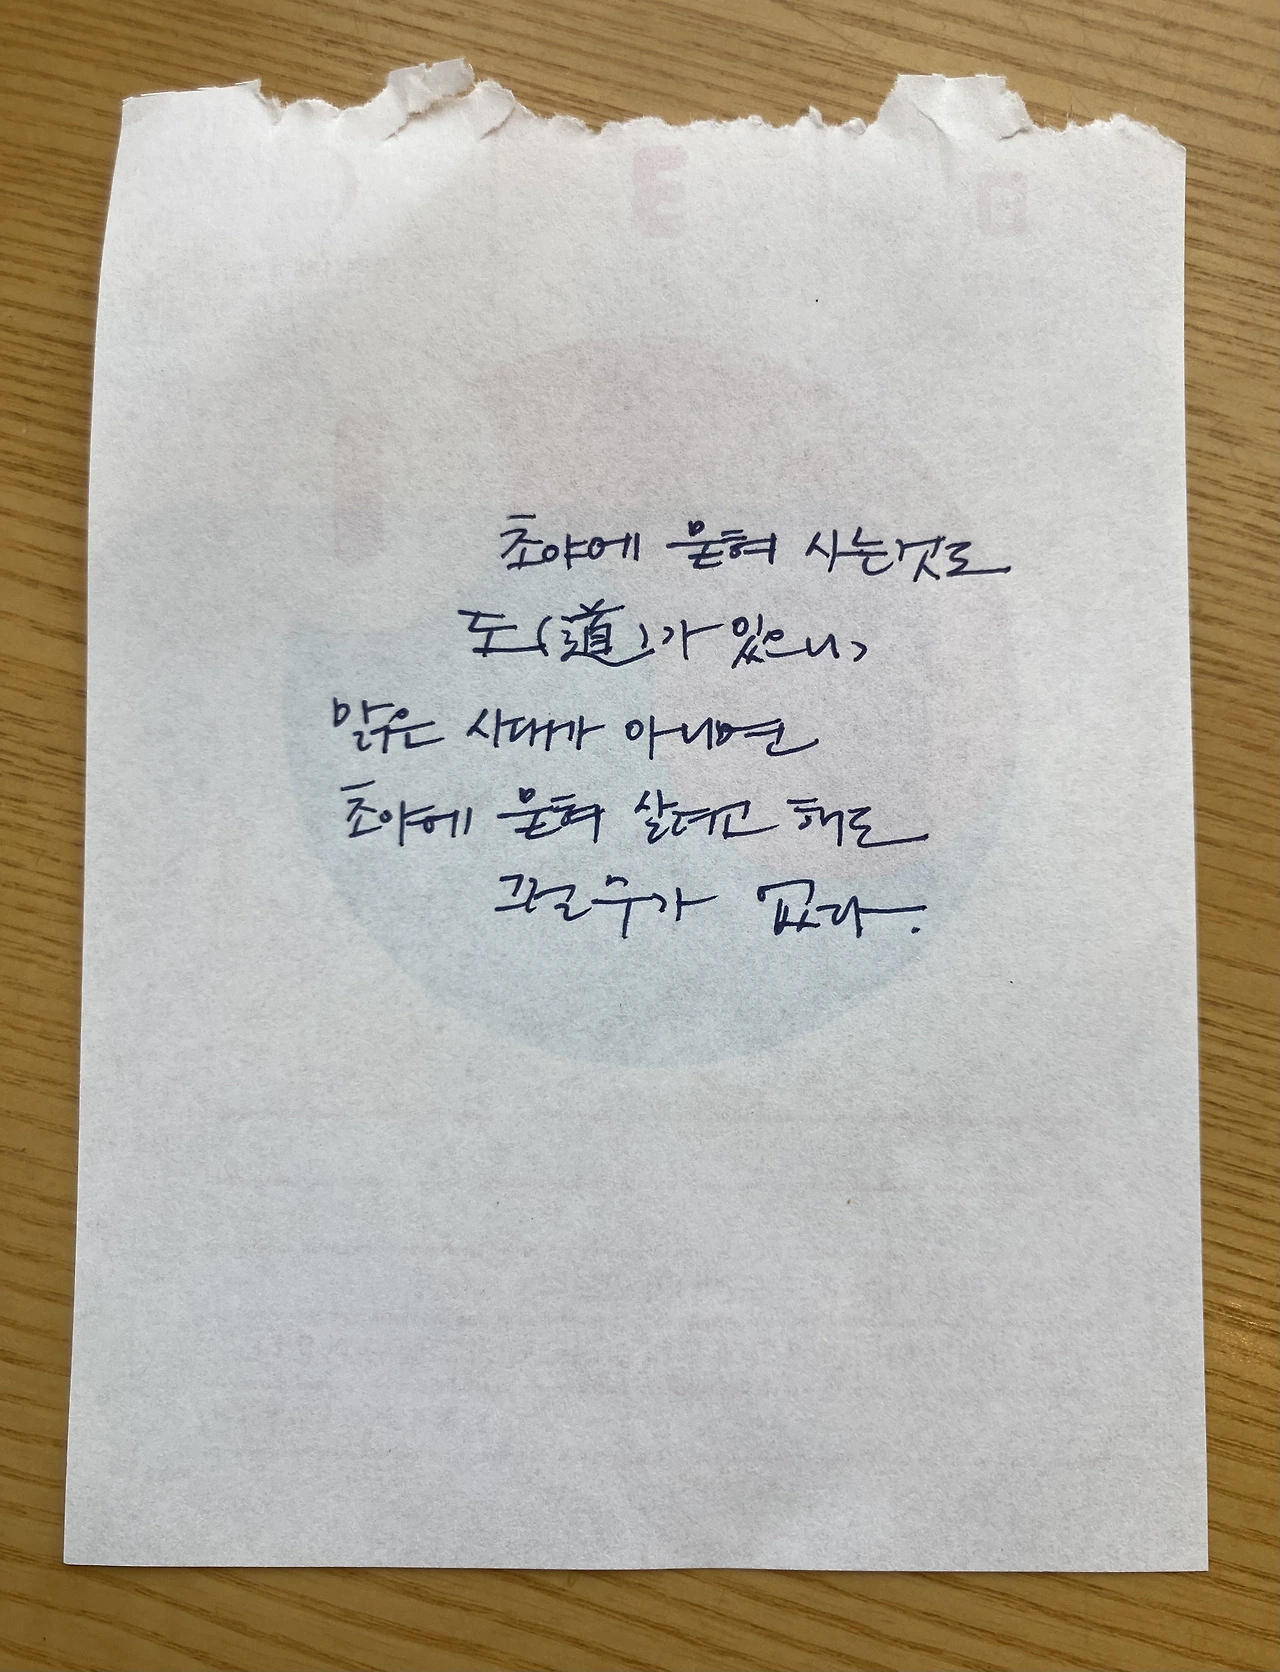 초야에 묻혀 사는것도
도(道)가 있으니,
맑은 시대가 아니면
초야에 묻혀 살려고 해도
그럴수가 없다.